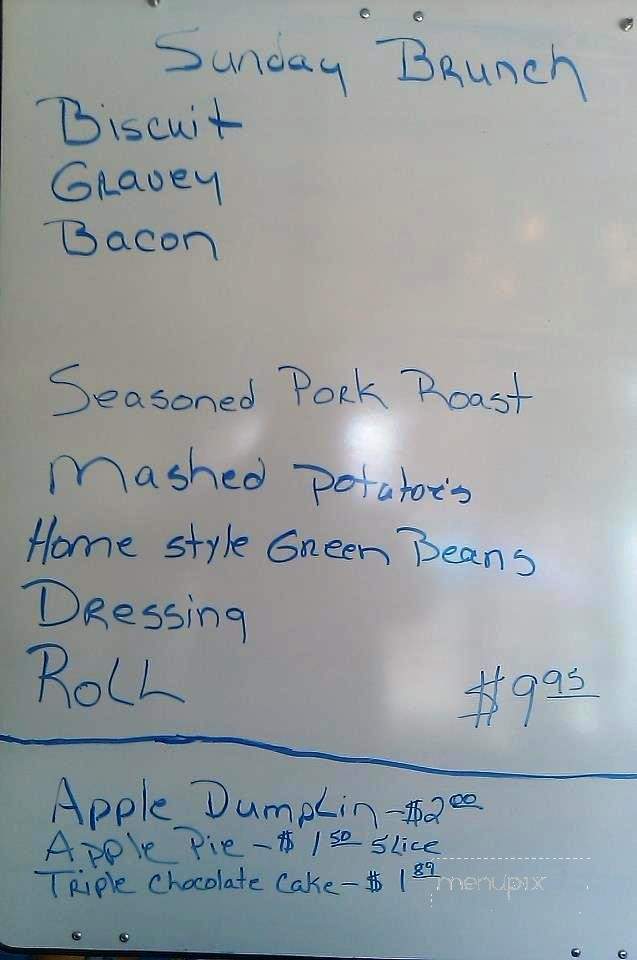 Sunday Brunch
Biscuit
Gravey
Bacon
Seasoned Pork Roast
Mashed Potatoe's
Home style Green Beans
Dressing
Roll
$9.95
Apple Dumplin - $2.00
Apple Pie - $1.50 slice
Triple Chocolate Cake - $1.89
menupix